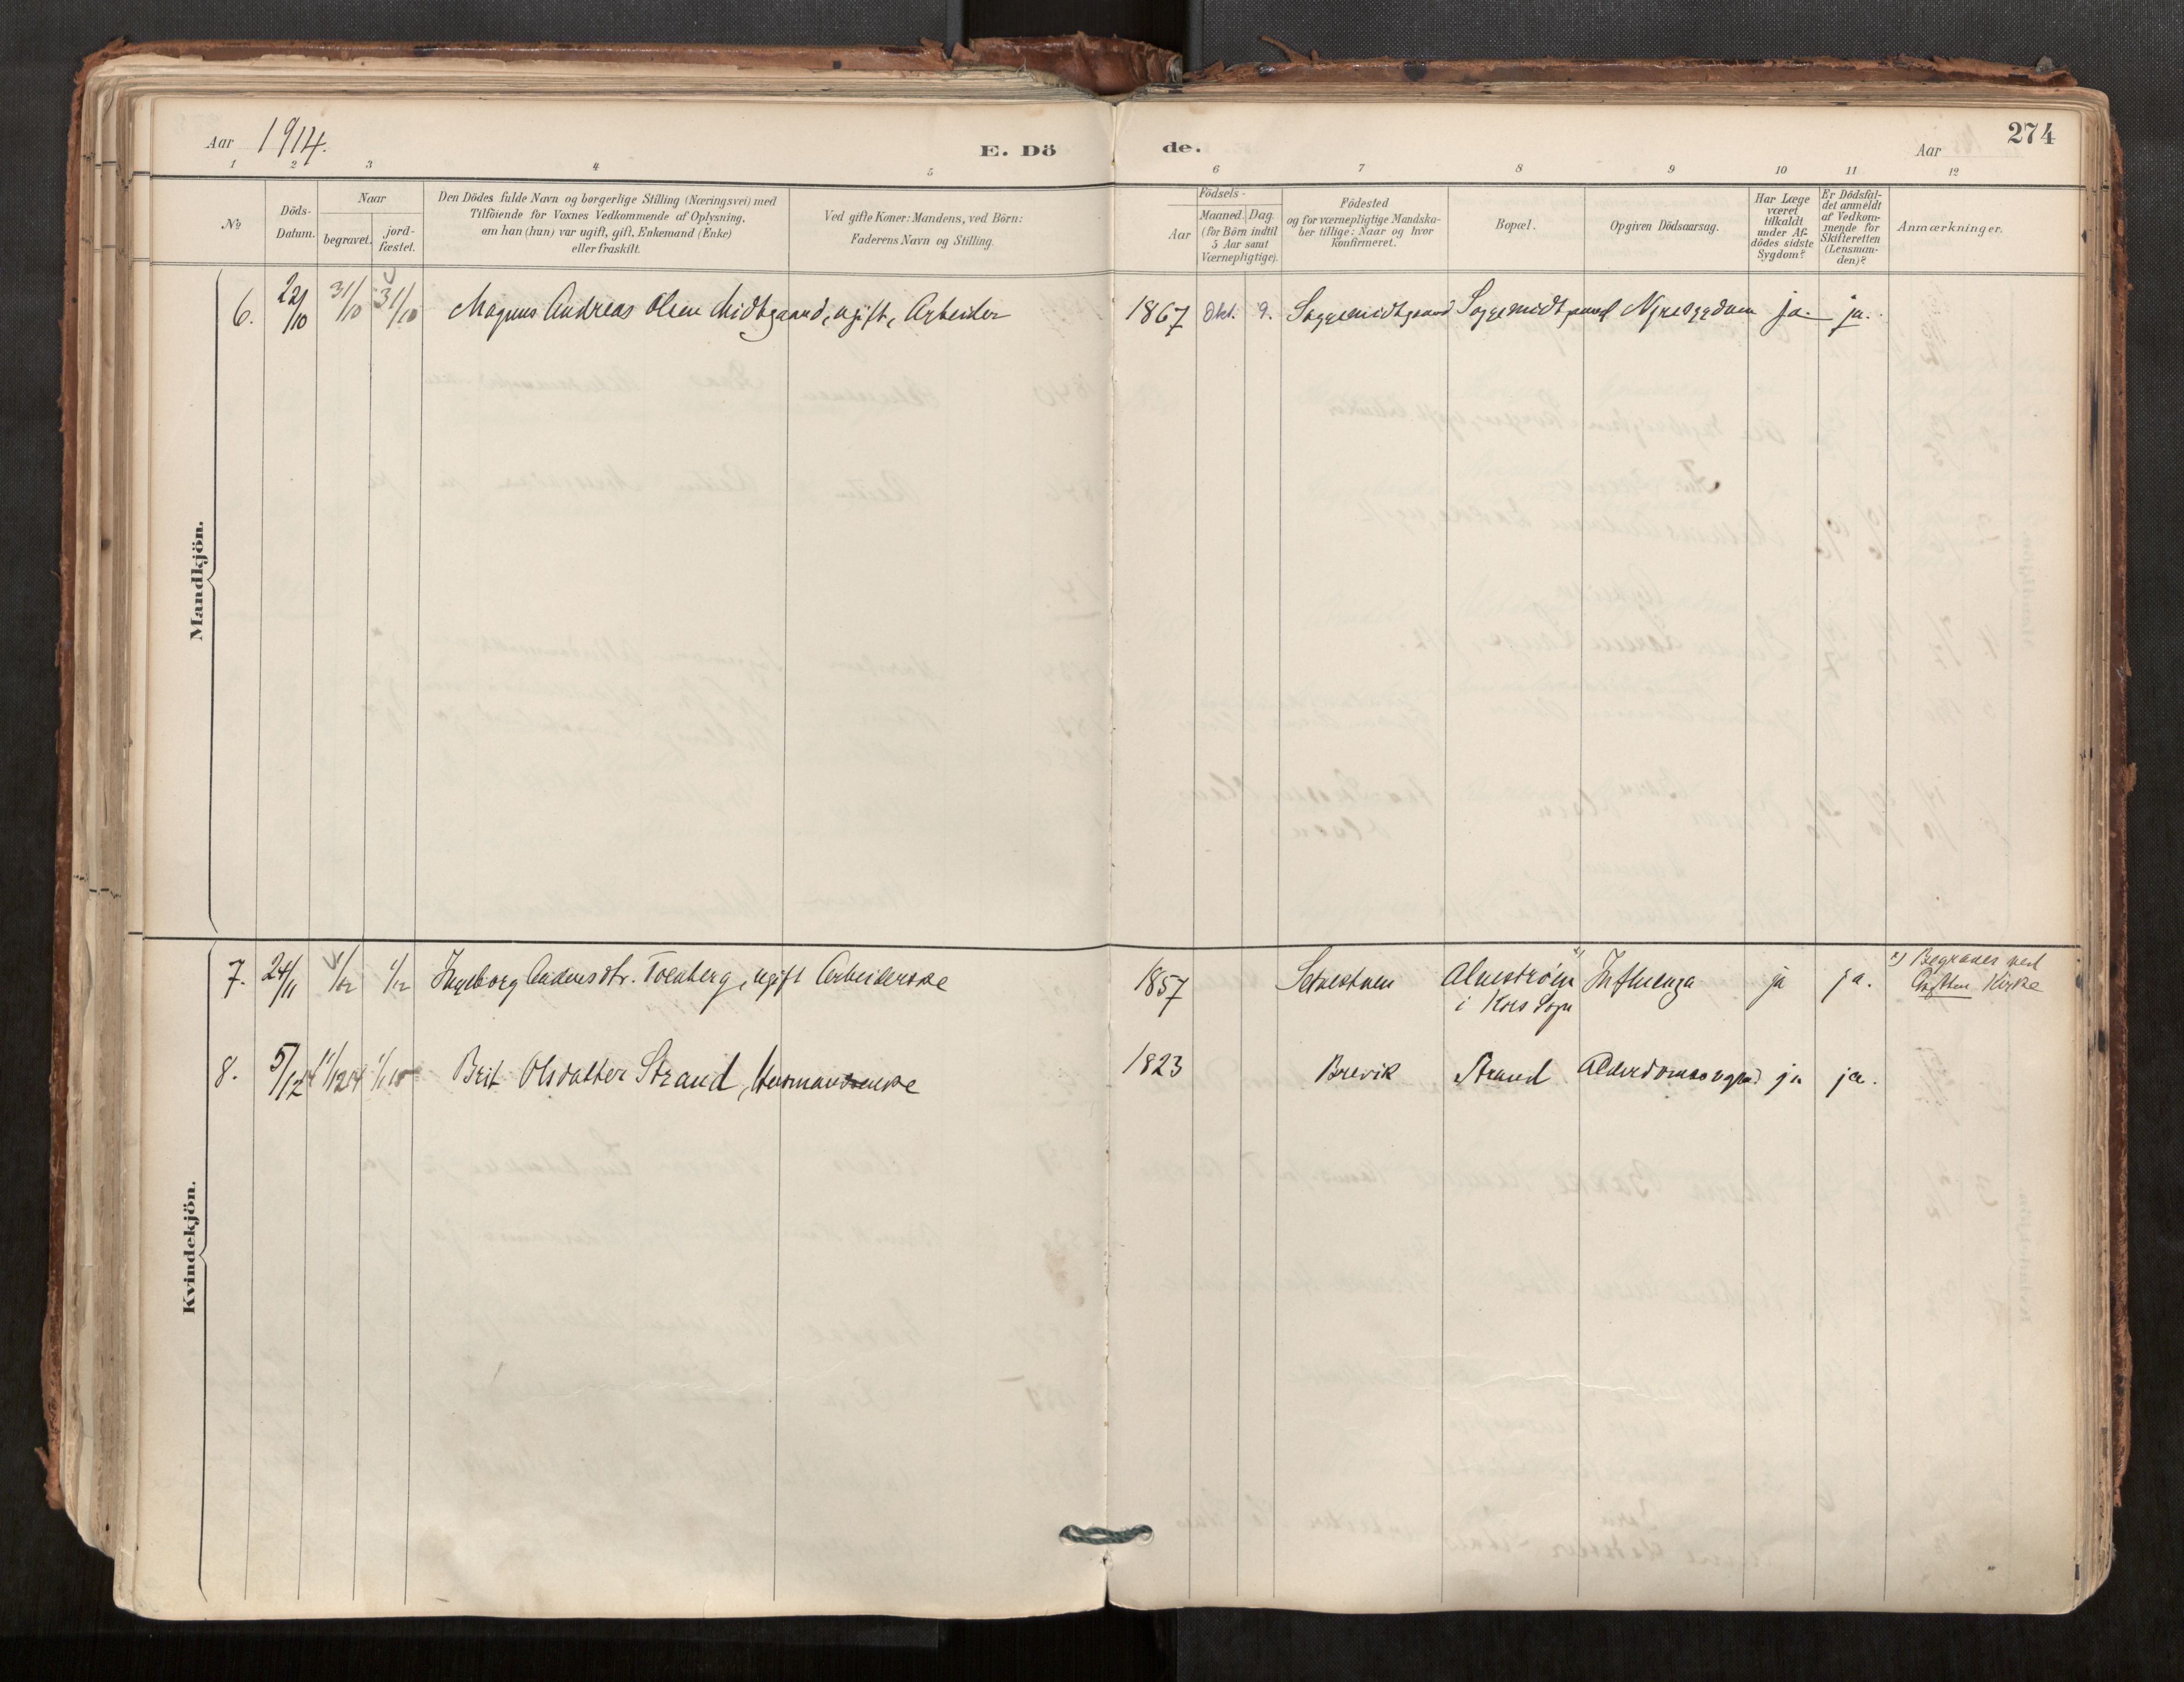 Aar 1914.
E. Dö
de.
Aar
274
1 2 3 4 5 6 7 8 9 10 11 12
№
Döds-
Datum.
Naar
begravet.
jord-
fæstet.
Den Dödes fulde Navn og borgerlige Stilling (Næringsvei) med
Tilföiende for Voxnes Vedkommende af Oplysning,
om han (hun) var ugift, gift, Enkemand (Enke)
eller fraskilt.
Ved gifte Koner: Mandens, ved Börn:
Faderens Navn og Stilling.
Födsels-
Aar
Maaned. Dag.
(for Börn indtil
5 Aar samt
Værnepligtige).
Födested
og for værnepligtige Mandska-
ber tillige: Naar og hvor
Konfirmeret.
Bopæl.
Opgiven Dödsaarsag.
Har Læge
været
tilkaldt
under Af-
dödes sidste
Sygdom?
Er Dödsfal-
det anmeldt
af Vedkom-
mende for
Skifteretten
(Lensman-
den)?
Anmærkninger.
Mandkjön.
6. 22/10 31/10 31/10 Magnus Andreas Olsen Midtgaard, ugift, Arbeider 1867 Okt. 9. Soggemidtgaard Soggemidtgaard Nyresygdom ja. ja.
Kvindekjön.
7. 24/11 1/12 1/12 Ingeborg Andersdtr. Toenberg, ugift Arbeiderske 1857 Setnesmoen Almestrøm Influenza ja ja. Begraves ved
i Kors Sogn Grytten Kirke
8. 5/12 Brit Olsdatter Strand, 1823 Brevik Strand Alderdomssvaghed ja ja.